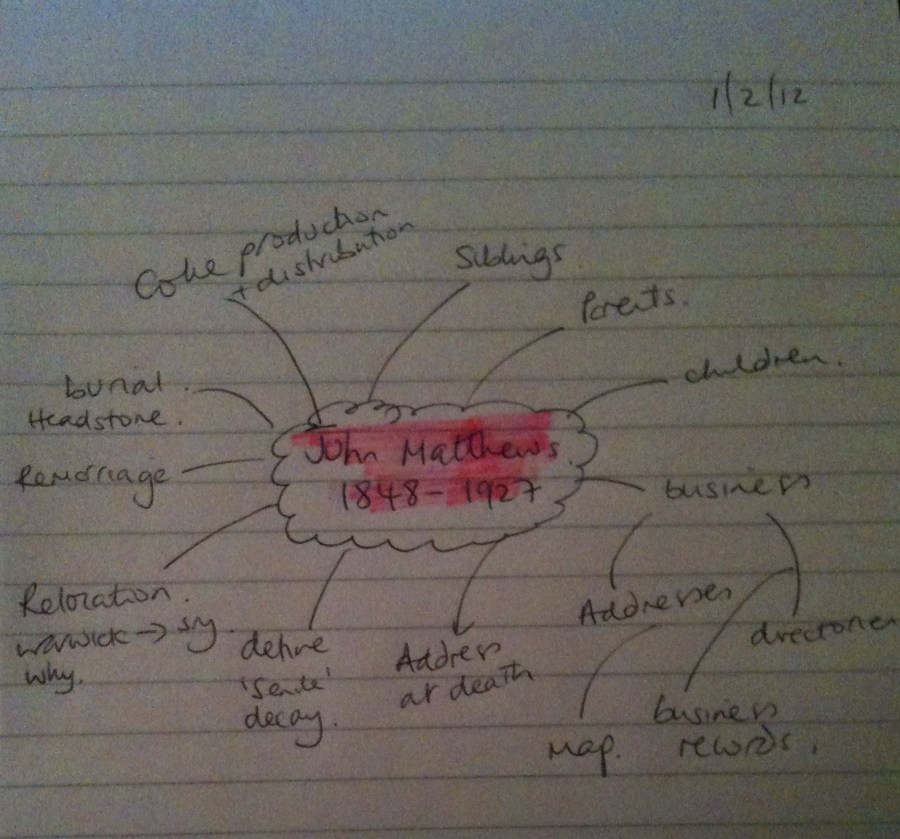 1/2/12
Coke production
+ distribution
Siblings.
Parents.
children.
burial.
Headstone.
Remarriage
John Matthews.
1848-1927
business
Relocation.
warwick → sy.
why.
define
'senile'
decay.
Address
at death
Addresses
directories
Map.
business
records.